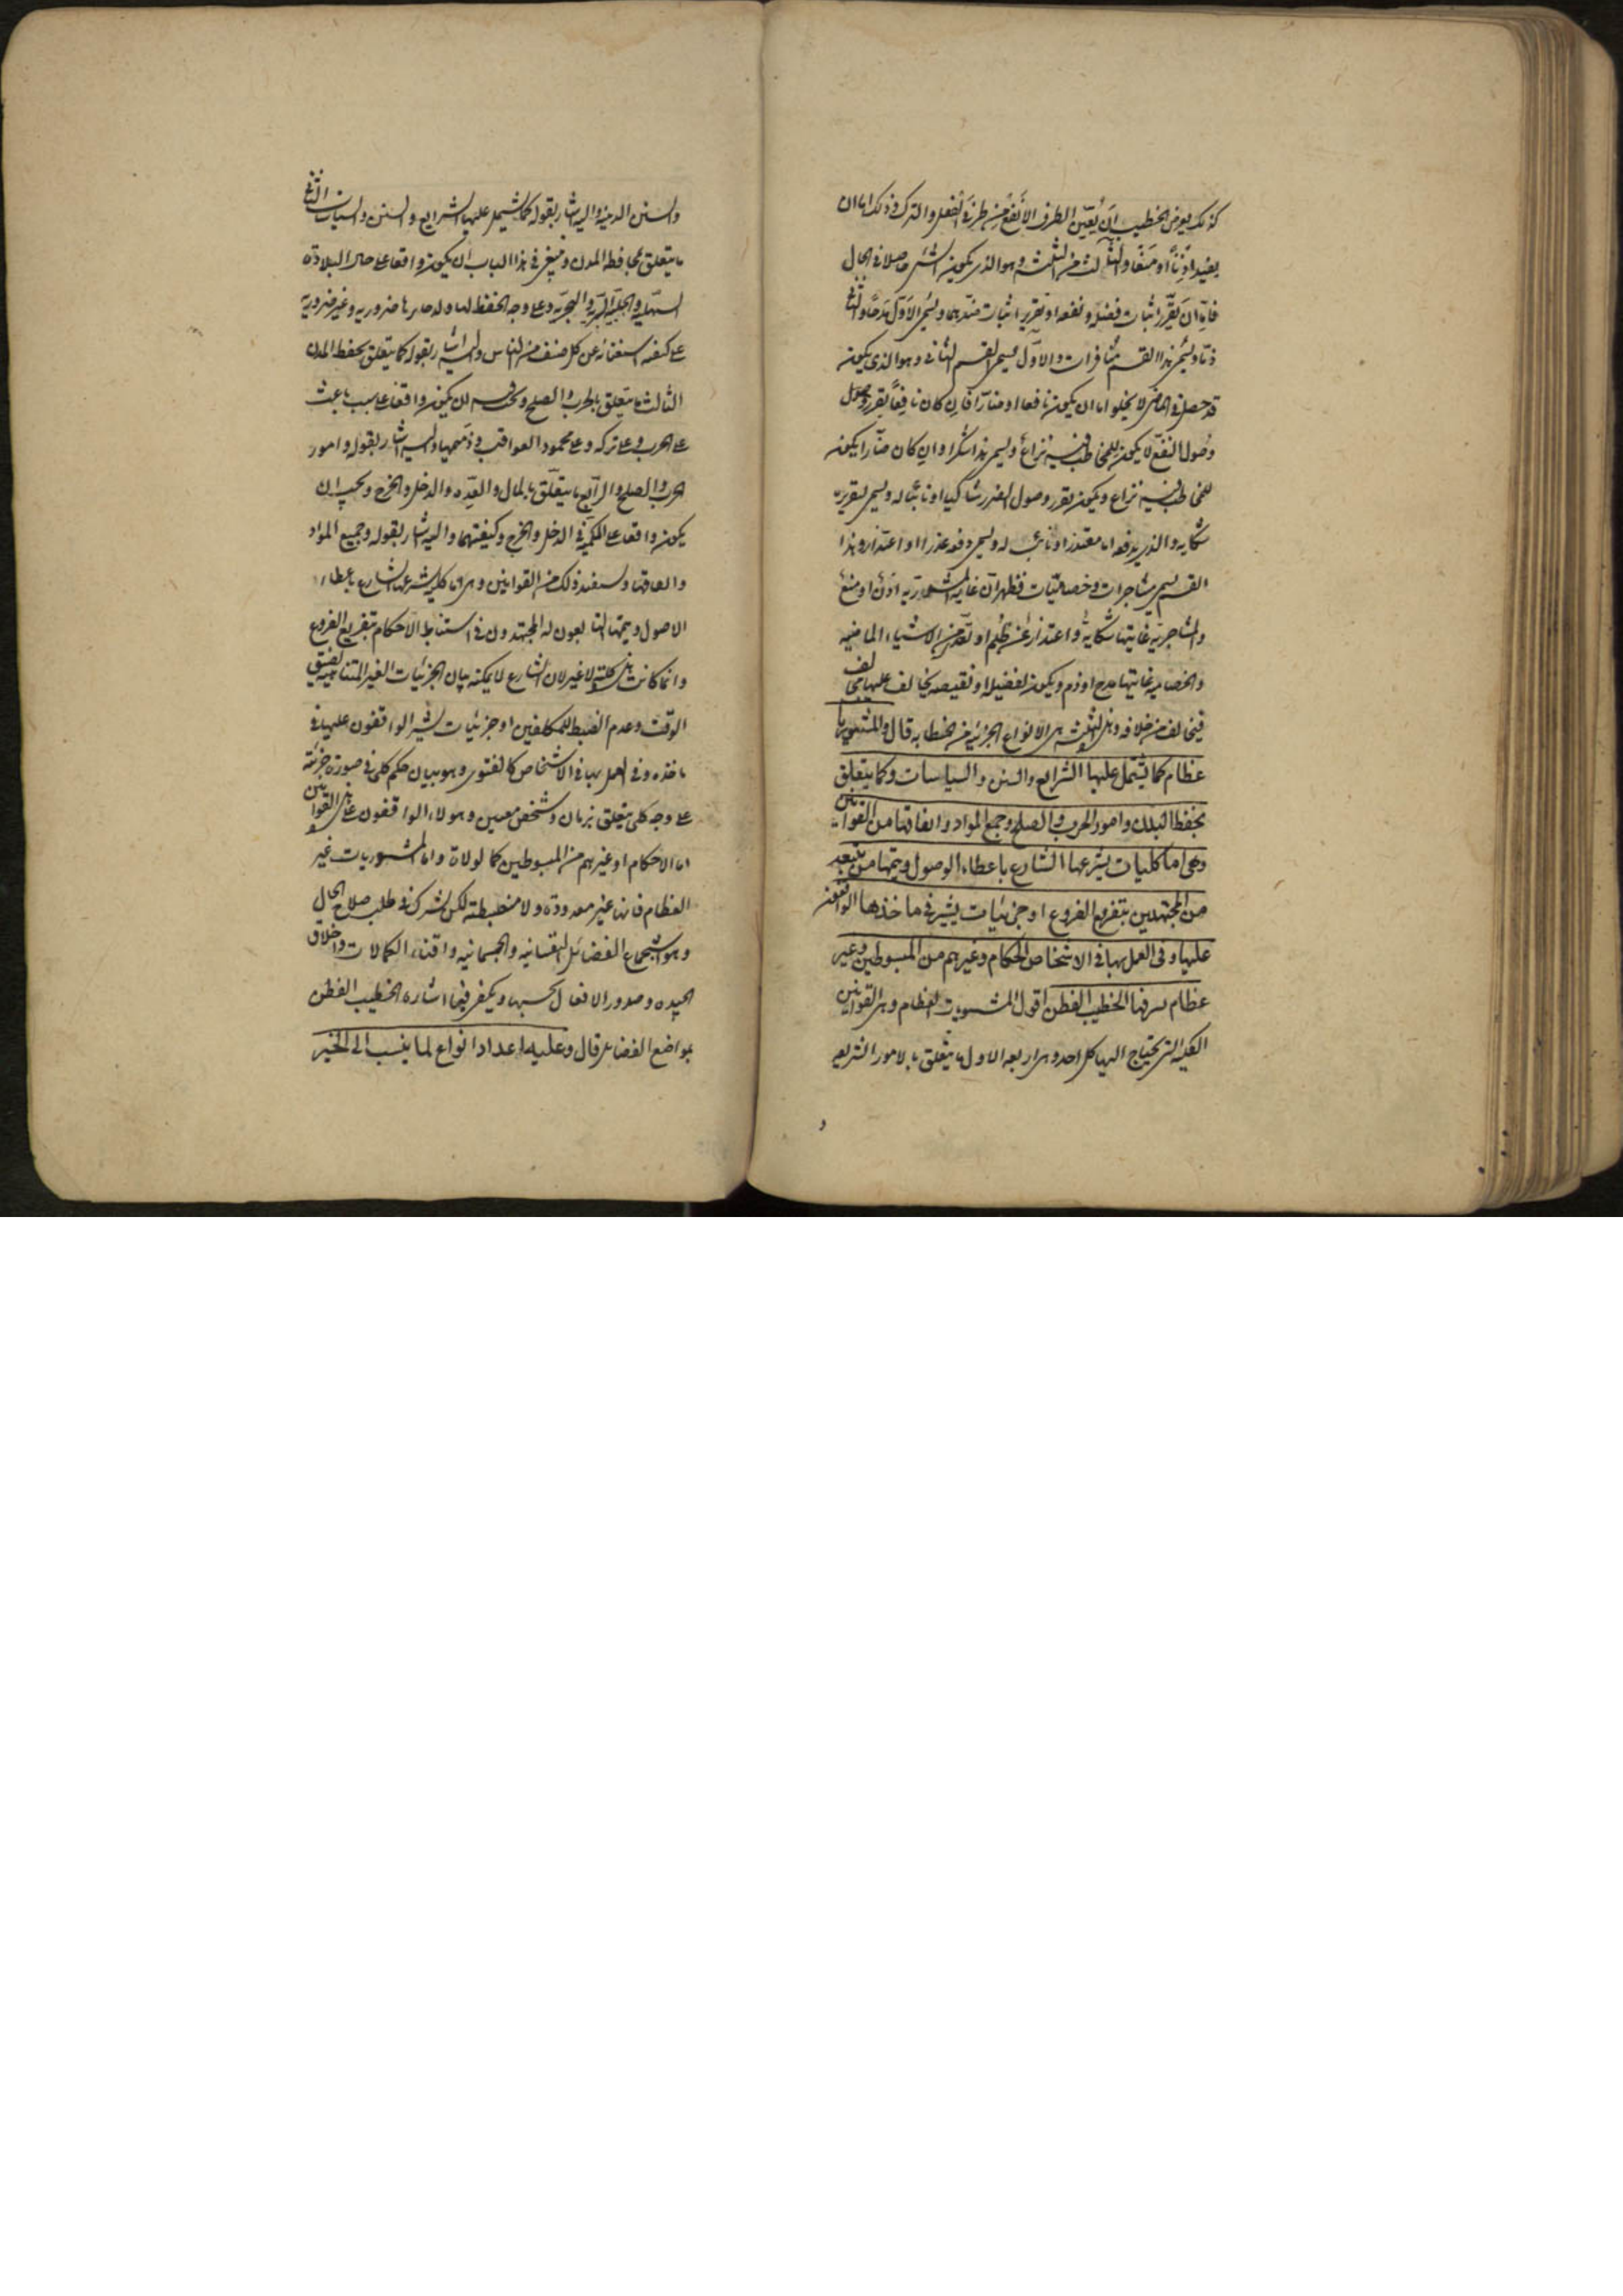 كذلك يعرض الخطيب ان يعين الطرف الأنفع من طرفى الفعل والترك وذلك اما ان
يفيد اذنا او منعا والثالث من الثلثة وهو الذى يكون الشئ حاصلا فى الحال
فانه ان يقرر اثبات فضيلة ونفعه او تقرير اثبات ضدهما ويسمى الاول مدحا والثانى
ذما ويسمى هذا القسم منافرات والاول يسمى القسم الثانى وهو الذى يكون
قد حصل فى الماضى لا يخلو اما ان يكون نافعا او ضارا فان كان نافعا يقرر وصول
وصول النفع لا يكون للمخاطب فيه نزاع ويسمى هذا شكرا وان كان ضارا يكون
للمخاطب فيه نزاع ويكون يقرر وصول الضرر شاكيا او نائبا له ويسمى تقريره
شكاية والذى يدفعه اما معتذر او نائب له ويسمى دفعه عذرا او اعتذارا وهذا
القسم يسمى مشاجرات وخصاميات فظهر ان غاية المشورية اذن او منع
والمشاجرية غايتها شكاية واعتذار عن ظلم او تعد من الاشياء الماضية
والخصامية غايتها مدح او ذم ويكون لفضيلة او نقيصة يخالف عليها مخالف
فيخالف من خلافه وهذه الثلثة هى الانواع الجزئية من الخطابة قال والمشوريات
عظام كما تشتمل عليها الشرائع والسنن والسياسات وكما يتعلق
بحفظ البلدان وامور الحرب والصلح وجمع المواد وانفاقها من القوانين
وهى اما كليات يشرعها الشارع باعطاء الوصول ويتمها من بعد
من المجتهدين بتفريع الفروع او جزئيات يشير فى ماخذها الواقفون
عليها وفى العمل بها فى الاشخاص الحكام وغيرهم من المبسوطين وغير
عظام يعرفها الخطيب الفطن اقول المشوريات العظام وهى القوانين
الكلية التى يحتاج اليها كل احد وهى اربعة الاول ما يتعلق بالامور الشرعية
و
والسنن الدينية واليه اشار بقوله كما تشتمل عليها الشرايع والسنن والسياسات الثانى
ما يتعلق بمحافظة المدن وينبغى فى هذا الباب ان يكون واقفا على حال البلاد
السهلية والجبلية البرية والبحرية وعلى وجه الحفظ لها ضرورية وغير ضرورية
على كيفية استغنائه عن كل صنف من الناس واليه اشار بقوله كما يتعلق بحفظ المدن
الثالث ما يتعلق بالحرب والصلح ويجب فيه ان يكون واقفا على سبب باعث
على الحرب وعلى تركه وعلى محمود العواقب وذميمها واليه اشار بقوله وامور
الحرب والصلح والرابع ما يتعلق بالمال والعدة والدخل والخرج ويجب ان
يكون واقفا على الكمية فى الدخل والخرج وكيفيتهما واليه اشار بقوله وجميع المواد
وانفاقها وليستفيد ذلك من القوانين وهى اما كلية يشرعها الشارع باعطاء
الاصول ويتمها التابعون له المجتهدون فى استنباط الاحكام بتفريع الفروع
وانما كانت هذه كلية لا غير لان الشارع لا يمكنه بيان الجزئيات الغير المتناهية لضيق
الوقت وعدم الضبط للمكلفين او جزئيات يشير الواقفون عليها فى
ماخذه وفى العمل بها فى الاشخاص كالفتوى وهو بيان حكم كلى فى صورة جزئية
على وجه كلى يتعلق بزمان وشخص معين وهولاء الواقفون على هذه القوانين
اما الاحكام او غيرهم من المبسوطين كالولاة واما المشوريات غير
العظام فانها غير معدودة ولا منضبطة لكن تشترك فى طلب صلاح الحال
وهو استجماع الفضائل النفسانية والجسمانية واقتناء الكمالات واخلاق
الجيدة وصدور الافعال بحسبها ويكفى فيها اشارة الخطيب الفطن
بمواضع الفضائل قال وعليه اعداد انواع لما ينسب الى الخير